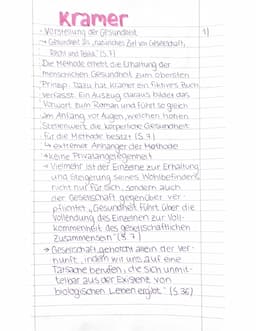 Kramer
1)
- Vorstellung der Gesundheit
→ Gesundheit als „natürliches Ziel von Gesellschaft,
Recht und Politik" (S.7)
Die Methode erhebt die Erhaltung der
menschlichen Gesundheit zum obersten
Prinzip. Dazu hat Kramer ein fiktives Buch
verfasst. Ein Auszug daraus bildet das
Vorwort zum Roman und führt so gleich
am Anfang vor Augen, welchen hohen
Stellenwert die körperliche Gesundheit
für die Methode besitzt (S.7)
↳ extremer Anhänger der Methode
→ keine Privatangelegenheit
→ Vielmehr ist der Einzelne zur Erhaltung
und Steigerung seines Wohlbefindens
nicht nur für sich, sondern auch
der Gesellschaft gegenüber ver-
pflichtet „Gesundheit führt über die
Vollendung des Einzelnen zur Voll-
kommenheit des gesellschaftlichen
Zusammenseins" (S.7)
→ Gesellschaft gehorcht allein der Ver-
nunft „indem wir uns auf eine
Tatsache berufen, die sich unmit-
telbar aus der Existenz von
biologischen Leben ergibt" (S.36)